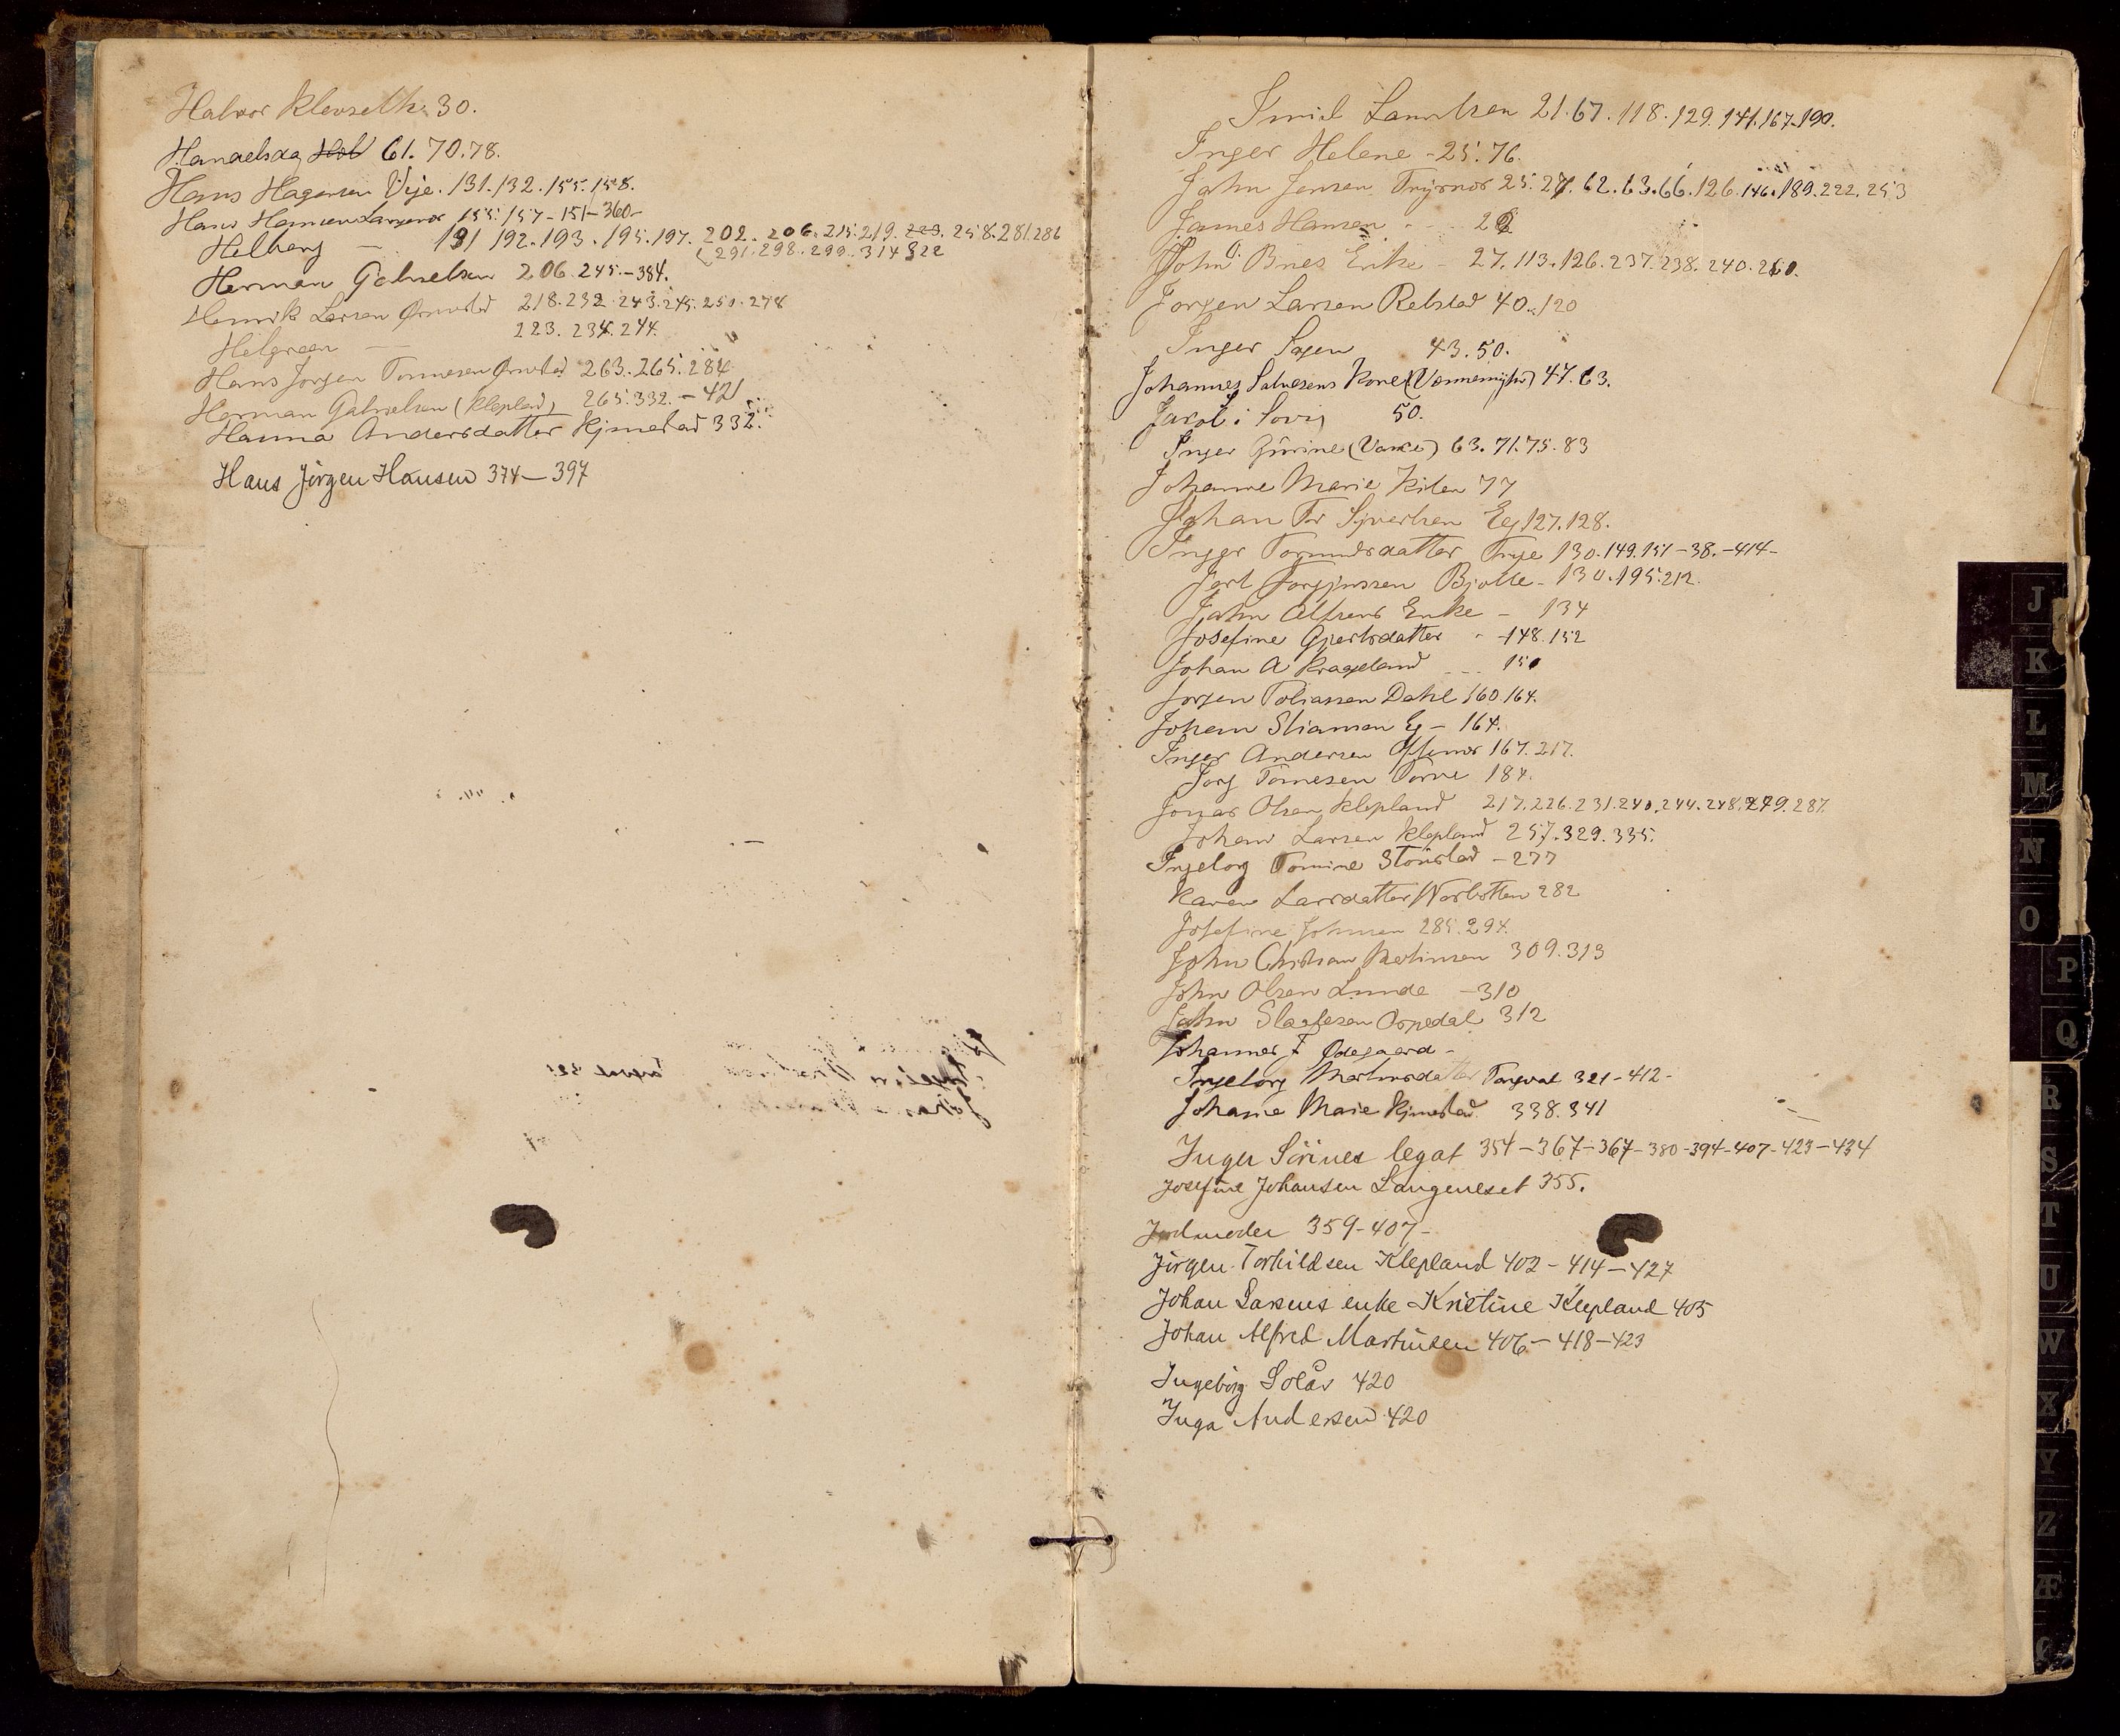 Halvor Klevseth. 30.
Handelsdag Hol 61. 70. 78.
Hans Hagensen Veje. 131. 132. 155. 158.
Hans Hansen Langenes 155. 157 - 151 - 360 -
Helberg — 191 192. 193. 195. 197. 202. 206. 215. 219. 223. 258. 281. 286
291. 298. 299. 314 322
Herman Gabrielsen 206. 245. - 384.
Henrik Larsen Ørnestad 218. 232. 243. 245. 250. 278
Helgreen — 223. 234. 244.
Hans Jorgen Tonnesen 263. 265. 284
Herman Gabrielsen (Klepland) 265. 332. - 421
Hanna Andersdatter Kjmestad 332.
Hans Jörgen Hansen 374 — 397
21. 67. 118. 129. 141. 167. 190.
Inger Helene - 25. 76.
John Jensen 25. 27. 62. 63. 66. 126. 146. 189. 222. 253
James Hansen - 2
John Enke - 27. 113. 126. 237. 238. 240. 260.
Jorgen Larsen Relstad 40. 120
Inger Sagen 43. 50.
Johannes Salvesens Kone 47. 63.
Jacob i 50.
Inger 63. 71. 75. 83
Johanne Marie Kilen 77
Johan Tr Syvertsen Eg 127. 128.
Inger Tormundsdatter Trye 130. 149. 151 - 38. - 414 -
130. 195. 212.
John Alfreds Enke - 134
Josefine Gjertsdatter - 148. 152
Johan A Krageland 150
Jorgen Tobiassen Dahl 160. 164.
Johan Stiansen Eg - 164.
Inger Andersen 167. 217.
Jorg Tomesen 184.
Jonas Olsen Klepland 217. 226. 231. 240. 244. 248. 279. 287.
Johan Larsen Klepland 257. 329. 335.
Ingeborg Tomine Stönstad - 277
Karen Larsdatter Norbotten 282
Josefine Johnsen 285. 294.
John Christian 309. 313
John Olsen Lunde - 310
John Ospedal 312
Johannes F Ødegaard -
Ingeborg Martinsdatter Tangval 321 - 412 -
Johanne Marie Kjmestad 338. 341
Inger Sörines legat 354 - 367 - 367 - 380 - 394 - 407 - 423 - 434
Josefine Johansen Langeneset 355.
Jordmoder 359 - 407 -
Jörgen Torkildsen Klepland 402 - 414 - 427
Johan Larsens enke Kristine Klepland 405
Johan Alfred Martinsen 406 - 418 - 423
Ingeborg Solås 420
Inga Andersen 420
J
K
L
M
N
O
P
Q
R
S
T
U
W
X
Y
Z
Æ
Ø